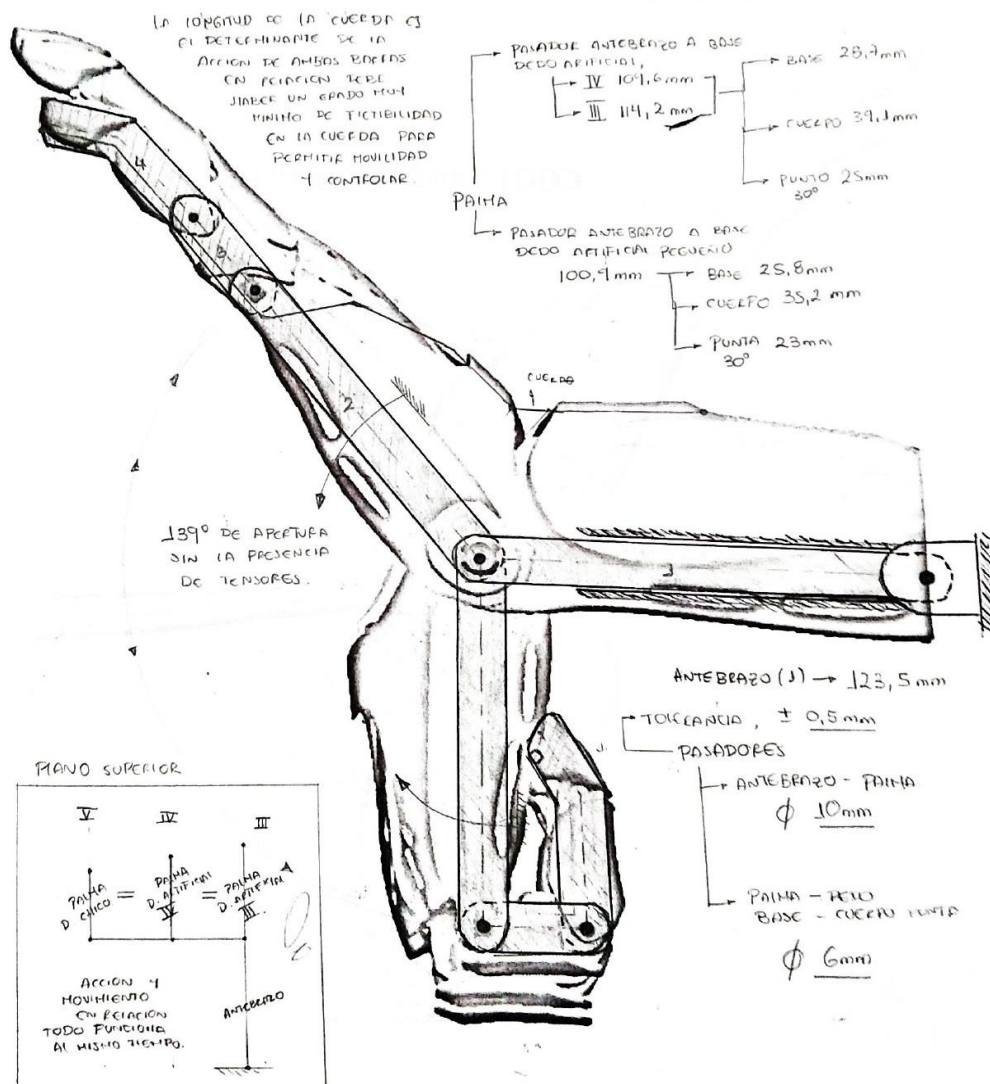 LA LONGITUD DE LA CUERDA ES
EL DETERMINANTE DE LA
ACCION DE AMBAS BARRAS
EN RELACION DEBE
HABER UN GRADO MUY
MINIMO DE FLEXIBILIDAD
EN LA CUERDA PARA
PERMITIR MOVILIDAD
Y CONTROLAR.
PALMA
PASADOR ANTEBRAZO A BASE
DEDO ARTIFICIAL,
IV 109,6mm
III 114,2mm
BASE 28,7mm
CUERPO 39,1mm
PUNTO 25mm
30°
PASADOR ANTEBRAZO A BASE
DEDO ARTIFICIAL PEQUEÑO
100,9mm
BASE 25,8mm
CUERPO 35,2 mm
PUNTA 23mm
30°
4
3
2
CUERDA
1
139° DE APERTURA
SIN LA PRESENCIA
DE TENSORES.
ANTEBRAZO (1) → 123,5mm
TOLERANCIA, ± 0,5mm
PASADORES
ANTEBRAZO - PALMA
ϕ 10mm
PALMA - DEDO
BASE - CUERPO PUNTA
ϕ 6mm
PLANO SUPERIOR
V IV III
PALMA D. CHICO = PALMA D. ARTIFICIAL IV = PALMA D. ARTIFICIAL III
ACCION Y
MOVIMIENTO
EN RELACION
TODO FUNCIONA
AL MISMO TIEMPO.
ANTEBRAZO